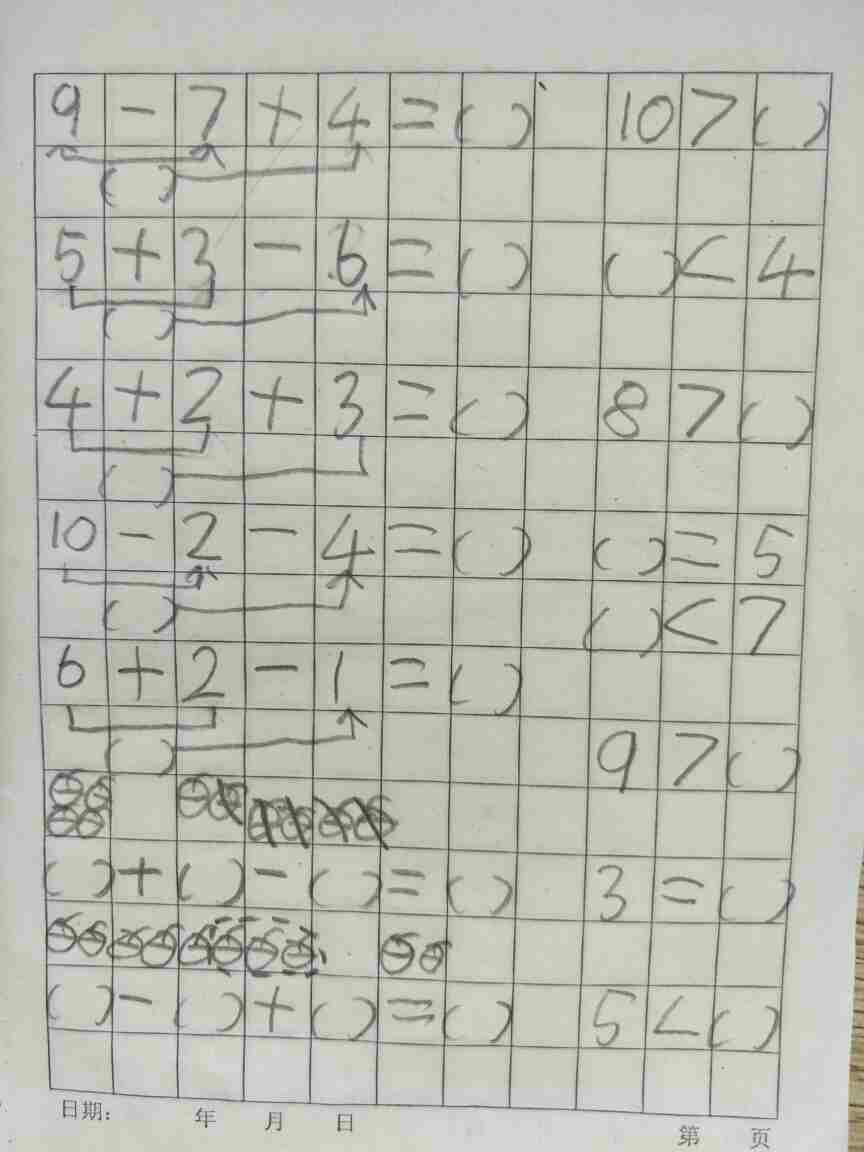 9 - 7 + 4 = ( ) 10 > ( )
( )
5 + 3 - 6 = ( ) ( ) < 4
( )
4 + 2 + 3 = ( ) 8 > ( )
( )
10 - 2 - 4 = ( ) ( ) = 5
( ) ( ) < 7
6 + 2 - 1 = ( )
( ) 9 > ( )
( ) + ( ) - ( ) = ( ) 3 = ( )
( ) - ( ) + ( ) = ( ) 5 < ( )
日期: 年 月 日 第 页